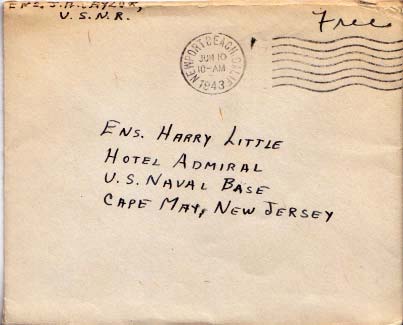 ENS.
U.S.N.R.
Free
NEWPORT BEACH, CALIF.
JUN 10
10-AM
1943
ENS. HARRY LITTLE
HOTEL ADMIRAL
U.S. NAVAL BASE
CAPE MAY, NEW JERSEY